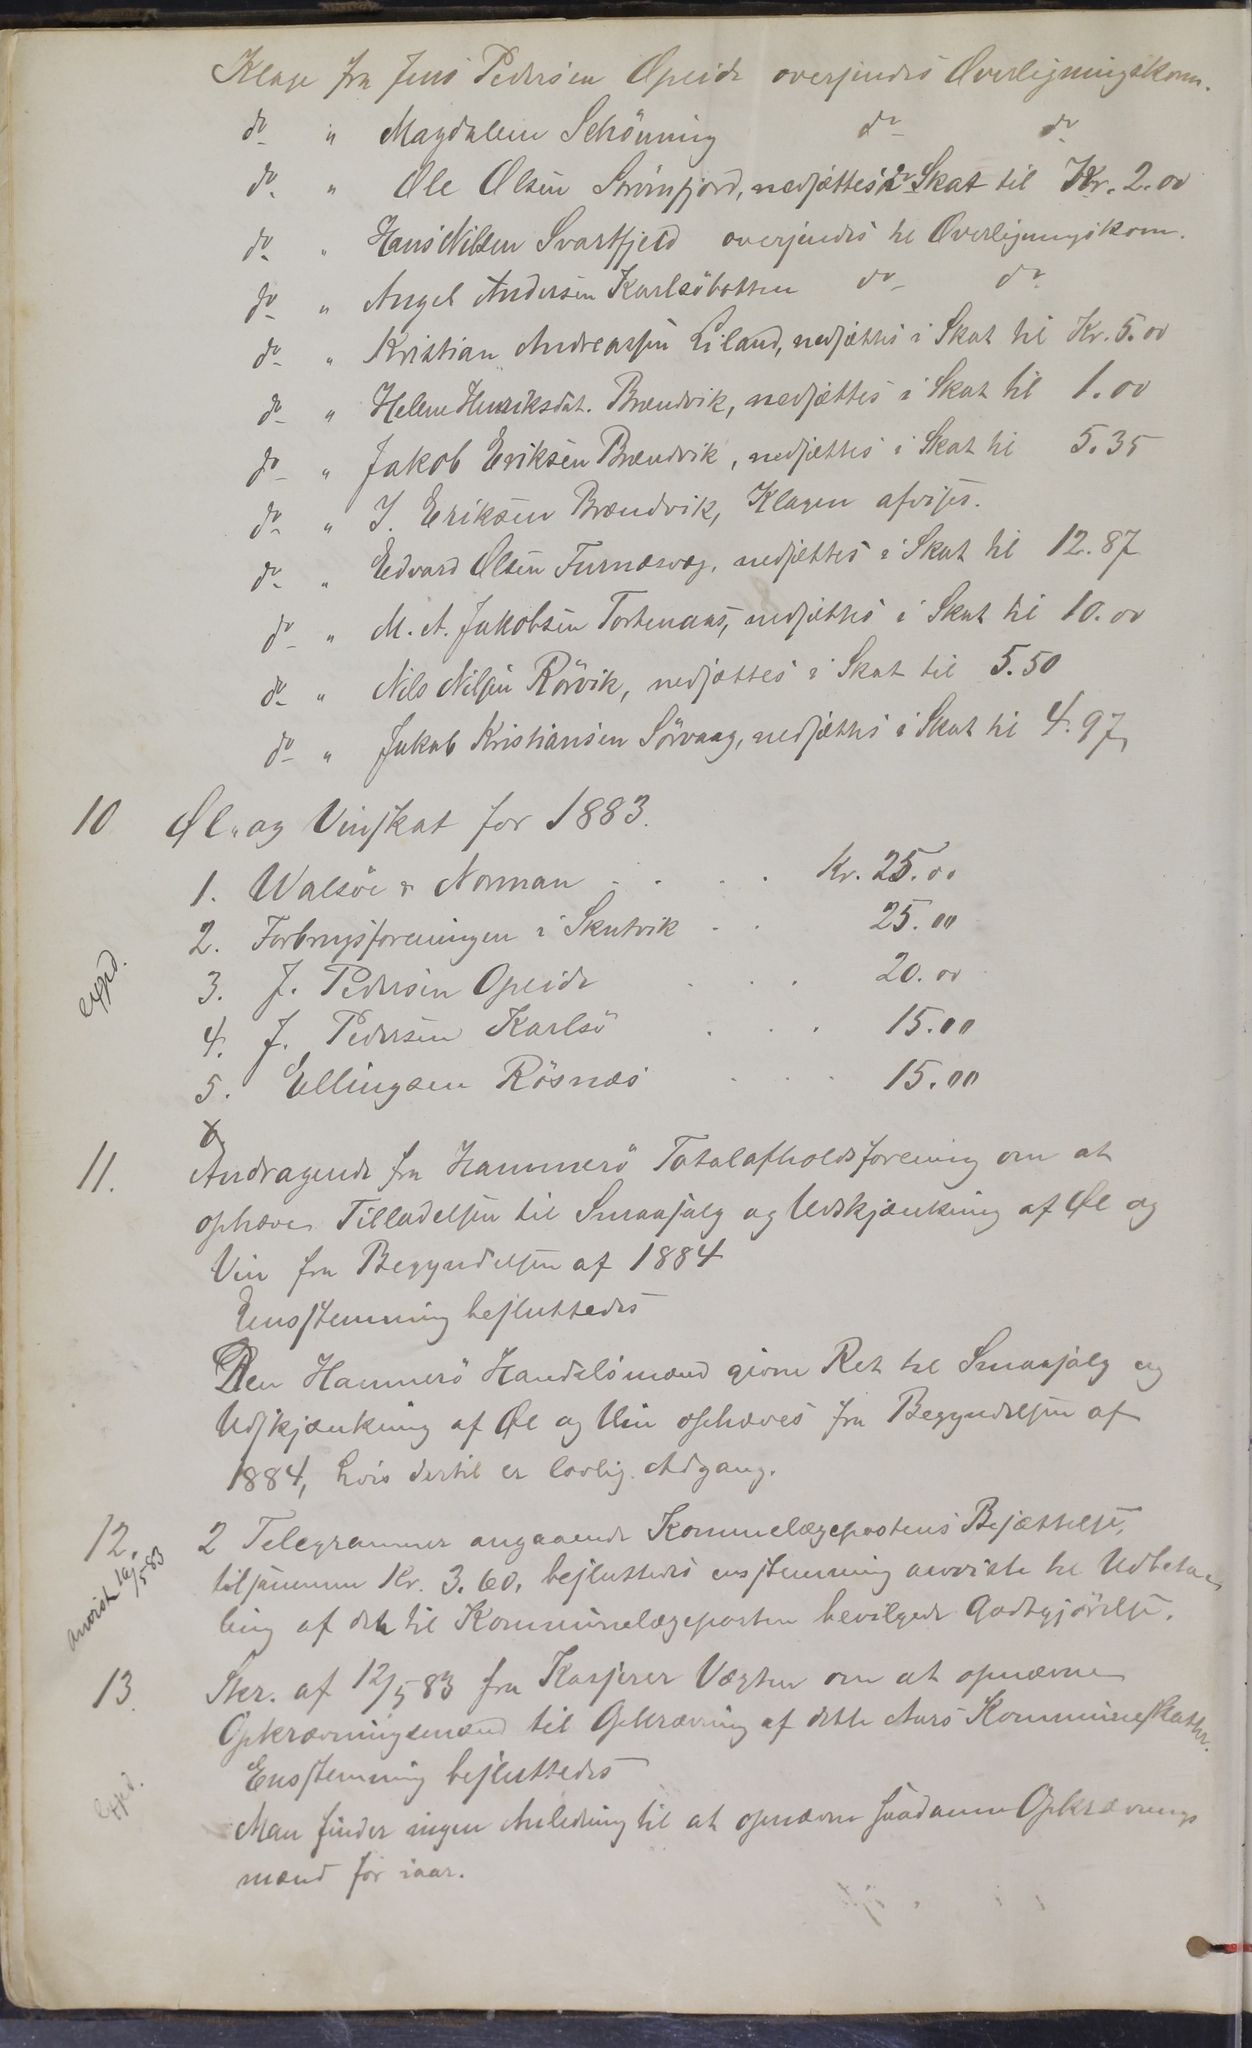 Klage fra Jens Pedersen Opeide oversendes Overligningskom.
do " Magdalene Schönning do do
do " Ole Olsen Strömfjord, nedsættes i Skat til Kr. 2.00
do " Hans Nilsen Svartfjeld oversendes til Overligningskom.
do " Angel Andersen Karlsöbotten do do
do " Kristian Andreassen Liland, nedsættes i Skat til Kr. 5.00
do " Helene Henriksdat. Brændvik, nedsættes i Skat til 1.00
do " Jakob Eriksen Brændvik, nedsættes i Skat til 5.35
do " J. Eriksen Brændvik, Klagen afvises.
do " Edvard Olsen Furnæsvæg, nedsættes i Skat til 12.87
do " M. A. Jakobsen Tortenaas, nedsættes i Skat til 10.00
do " Nils Nilsen Rörvik, nedsættes i Skat til 5.50
do " Jakob Kristiansen Sörvaag, nedsættes i Skat til 4.97
10 Øl- og Vinskat for 1883.
1. Walsöe & Norman . . . . Kr. 25.00
2. Forbrugsforeningen i Skutvik . . 25.00
expd.
3. J. Pedersen Opeide . . . 20.00
4. J. Pedersen Karlsö . . . 15.00
5. Ellingsen Rösnæs . . . 15.00
11. Andragende fra Hammerö Totalafholdsforening om at
ophæve Tilladelsen til Smaasalg og Udskjænkning af Øl og
Vin fra Begyndelsen af 1884
Ensstemmig besluttedes
Den Hammerö Handelsmænd givne Ret til Smaasalg og
Udskjænkning af Øl og Vin ophæves fra Begyndelsen af
1884, hvis dertil er lovlig Adgang.
12. 2 Telegrammer angaaende Kommunelægepostens Besættelse,
anvist 16/5 83
tilsammen Kr. 3.60, besluttedes ensstemmig anviste til Udbeta-
ling af den til Kommunelægeposten bevilgede Godtgjörelse.
13. Skr. af 12/5 83 fra Kasserer Vægter om at opnævne
Opkrævningsmænd til Opkrævning af dette Aars Kommuneskatter.
Ensstemmig besluttedes
expd.
Man finder ingen Anledning til at opnævne saadanne Opkrævnings
mænd for iaar.